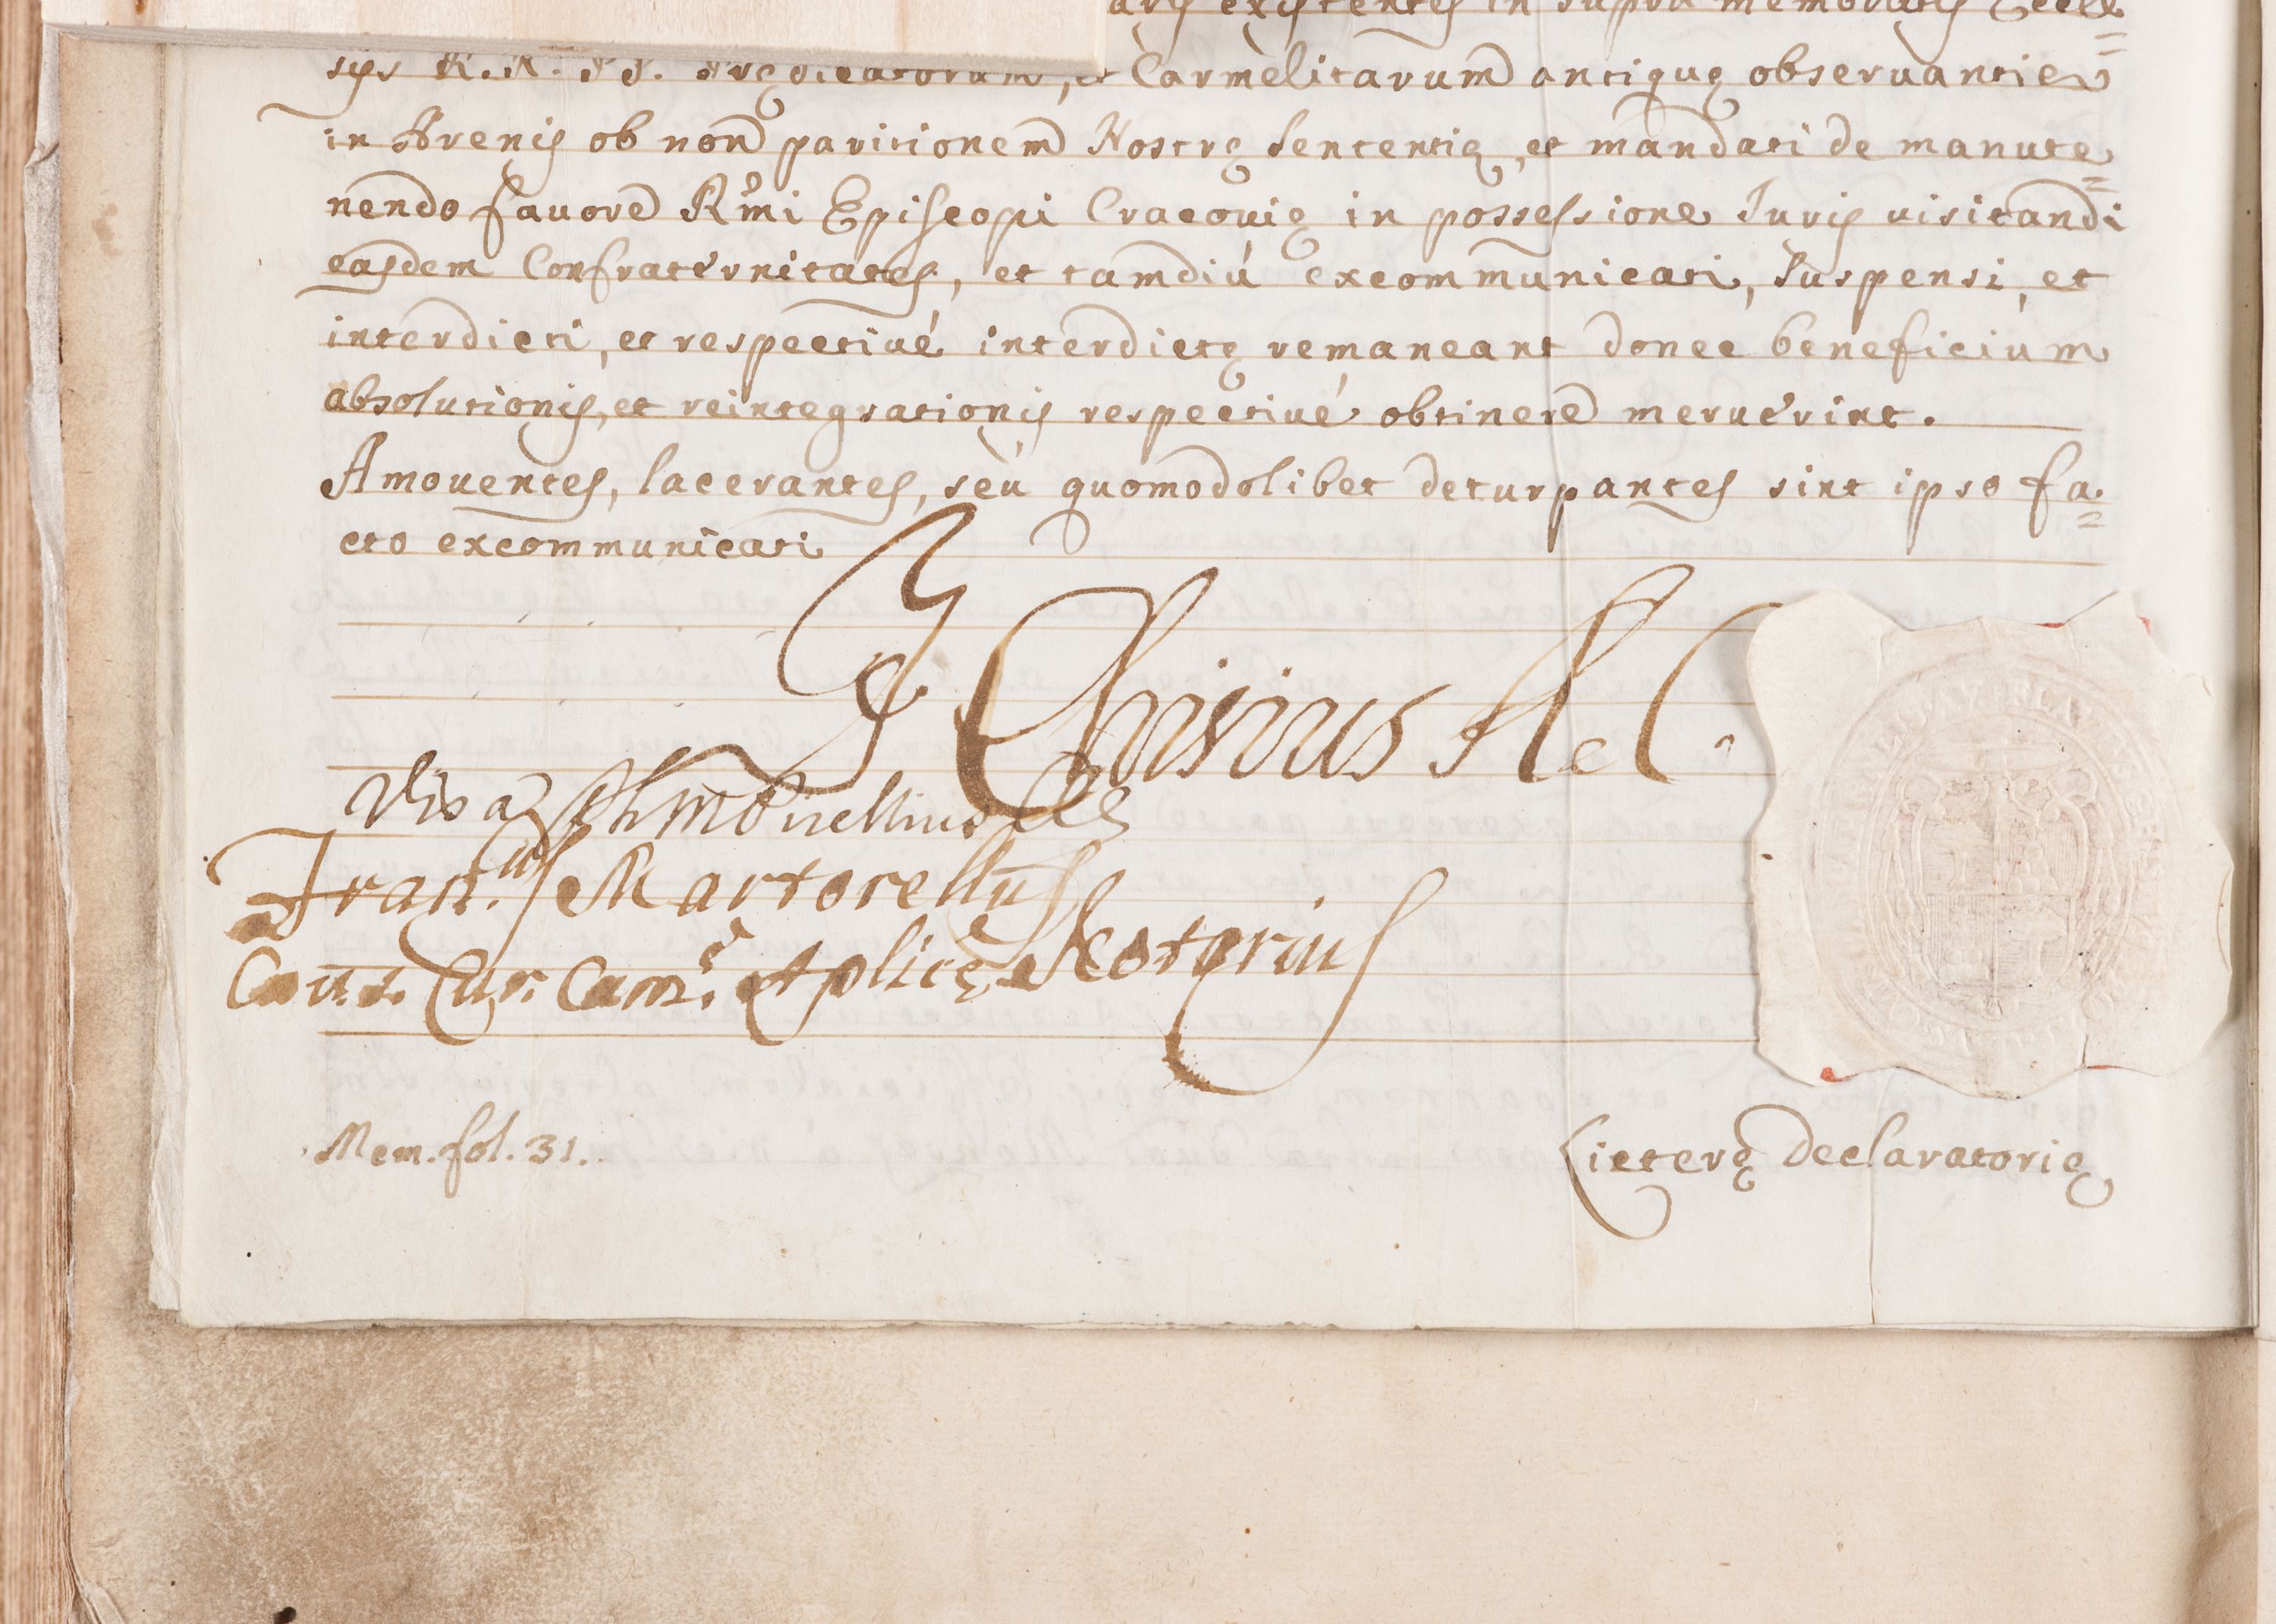 arÿ existentes in supra memoratis Eccle=
sÿs R. R. P P. Prędicatorum, et Carmelitarum antiquę obseruantię
in Arenis ob non paritionem Nostrę sententię, et mandati de manute=
nendo fauore Rmi Episcopi Cracouię in possessione Iuris uisitandi
easdem Confraternitates, et tamdiú excommunicati, suspensi, et
interdicti, et respectiué interdictę remaneant donec beneficiúm
absolutionis, et reintegrationis respectiué obtinere meruerint.
Amouentes, lacerantes, seù quomodolibet deturpantes sint ipso fa=
cto excommunicati
Chisius A. C.
Visa
Fran.cus Martorellus
Caus. Cur. Cam.e Aplicę Notarius
Mem. fol. 31.
Litterę Declaratorię